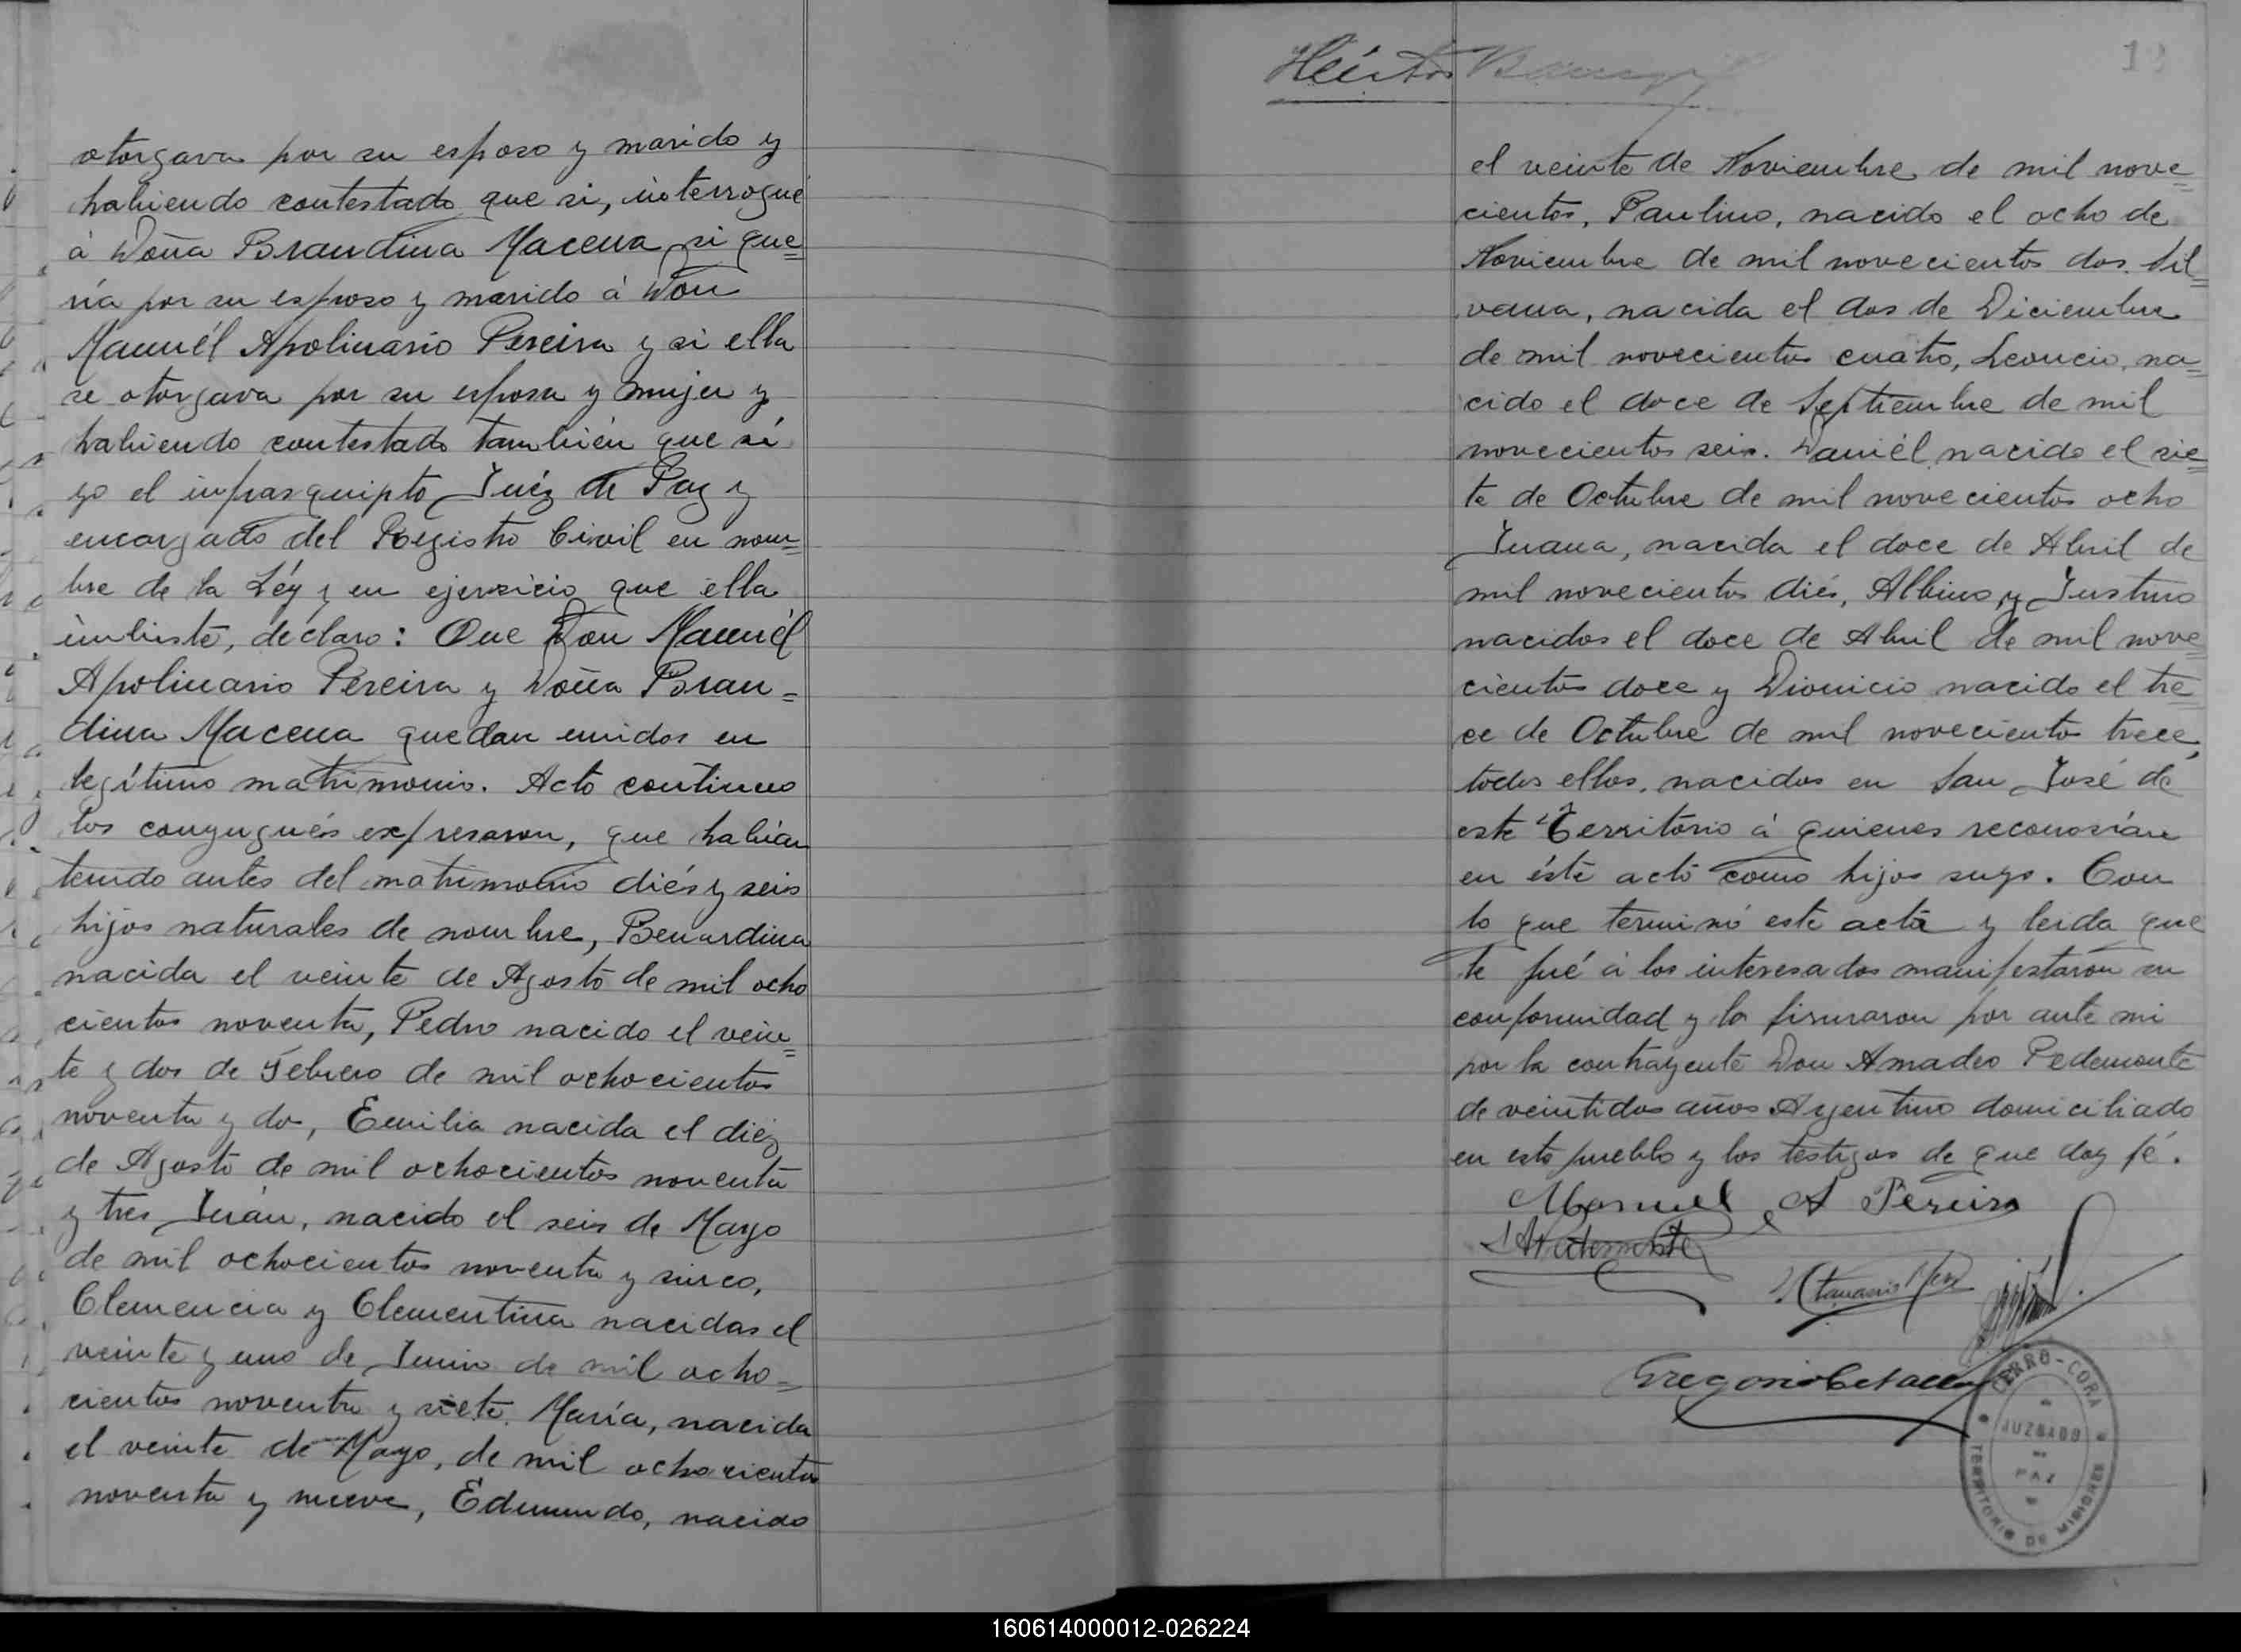 otorgava por su esposo y marido y
habiendo contestado que si, interrogué
á Doña Brandina Macena si que=
ría por su esposo y marido á Don
Manuél Apolinario Pereira y si ella
se otorgava por su esposa y mujer y
habiendo contestado también que sí
yo el infrasquipto Juéz de Paz y
encargado del Registro Civil en nom=
bre de la Léy y en ejersicio que ella
imbiste, declaro: Que Don Manuél
Apolinario Pereira y Doña Bran=
dina Macena quedan unidos en
legítimo matrimonio. Acto continuo
los conyugués expresaron, que habían
tenido antes del matrimonio diés y seis
hijos naturales de nombre, Benardina
nacida el veinte de Agosto de mil ocho
cientos noventa, Pedro nacido el vein=
te y dos de Febrero de mil ochocientos
noventa y do, Emilia nacida el diéz
de Agosto de mil ochocientos noventa
y tres Juán, nacido el seis de Mayo
de mil ochocientos noventa y sinco,
Clemencia y Clementina nacidas el
veinte y uno de Junio de mil ocho=
cientos noventa y siete. María, nacida
el veinte de Mayo, de mil ochocientos
noventa y nueve, Edmundo, nacido
Héctor
el veinte de Noviembre de mil nove=
cientos, Paulino, nacido el ocho de
Noviembre de mil novecientos dos. Sil=
vana, nacida el dos de Diciembre
de mil novecientos cuatro, Leoncio, na=
cido el doce de Septiembre de mil
novecientos seis. Daniél nacido el sie=
te de Octubre de mil novecientos ocho
Juana, nacida el doce de Abril de
mil novecientos diés, Albino y Justino
nacidos el doce de Abril de mil nove=
cientos doce y Dionicio nacido el tre=
ce de Octubre de mil novecientos trece,
todos ellos, nacidos en San José de
este Territorio á quienes reconosían
en éste acto como hijos suyo. Con
lo que terminó este acta y leida que
le fué á los interesados manifestaron su
conformidad y la firmaron por ante mi
por la contrayente Don Amadeo Pedemonte
de veintidos años Argentino domiciliado
en este pueblo y los testigos de que doy fé.
Manuel A Pereira
Gregorio
CERRO-CORA
JUZGADO
PAZ
TERRITORIO DE MISIONES
160614000012-026224